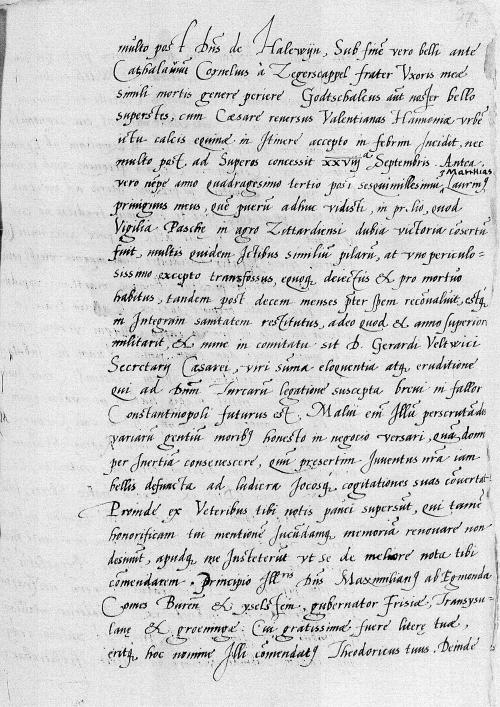 multo post Dns de Halewijn, Sub fine vero belli ante
Cathalaunum Cornelius à Zegerscappel frater Vxoris meæ
simili mortis genere periere Godtschalcus aut noster bello
superstes, cum Cæsare reversus Valentianas Hannoniæ vrbe
ictu calcis equinæ in Itinere accepto in febrim Incidit, nec
multo post, ad Superos concessit xxviij Septembris. Antea
vero nēpe anno quadragesimo tertio post sesquimillesimū, Matthias Laurinꝰ
primigenius meus, quē puerū adhuc vidisti, in prælio, quod
Vigilia Pasche in agro Zittardiensi dubia victoria cōsertū
fuit, multis quidem Ictibus similiū pilarū, at vno periculo-
sissimo excepto transfossus, equoq̨ deiectus & pro mortuo
habitus, tandem post decem menses pter spem reconvaluit, estq̨
in Integram sanitatem restitutus, adeo quod & anno superiori
militarit, & nunc in comitatu sit D. Gerardi Veltwici
Secretarij Cæsarei, viri suma eloquentia atq̨ eruditione
qui ad Turcarū legatione suscepta brevi ni fallor
Constantinopoli futurus est. Malui em Illū perscrutādis
variarū gentiū moribꝰ honesto in negocio versari, quā domi
per Inertiā consenescere, qum presertim Iuventus nrā iam
bellis defuncta ad ludicra Iocosq̨ cogitationes suas cōvertat
Proinde ex Veteribus tibi notis pauci supersūt, qui tamē
honorificam tui mentione Iucundamq̨ memoriā renovare non
desinūt, apudq̨ me Insteterūt vt se de meliore nota tibi
cōmendarem. Principio Ill^ris Dns Maxmilianꝰ ab Egmonda
Comes Buren & yselsteyn, gubernator Frisiæ, Transysu-
lanę & groeningæ. Cui gratissimæ fuere literę tuæ,
eritq̨ hoc nomine Illi cōmendatꝰ Theodoricus tuus. Deinde